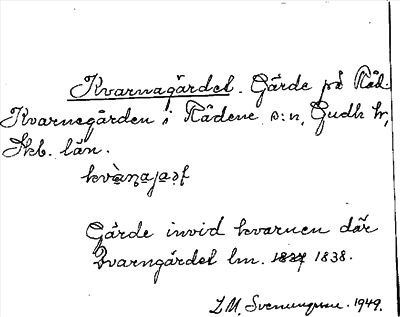 Kvarnagärdet. Gärde på Råd.
Kvarnegården i Rådene s:n, Gudh hr,
Skb. län.
Gärde invid kvarnen där
Qvarngärdet lm. 1837 1838.
I.M. Svenungsson. 1949.